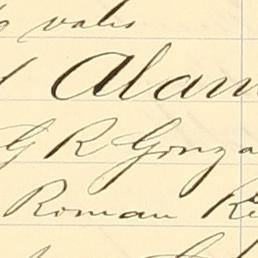 vales
Alam
G R Gonza
Roman Re